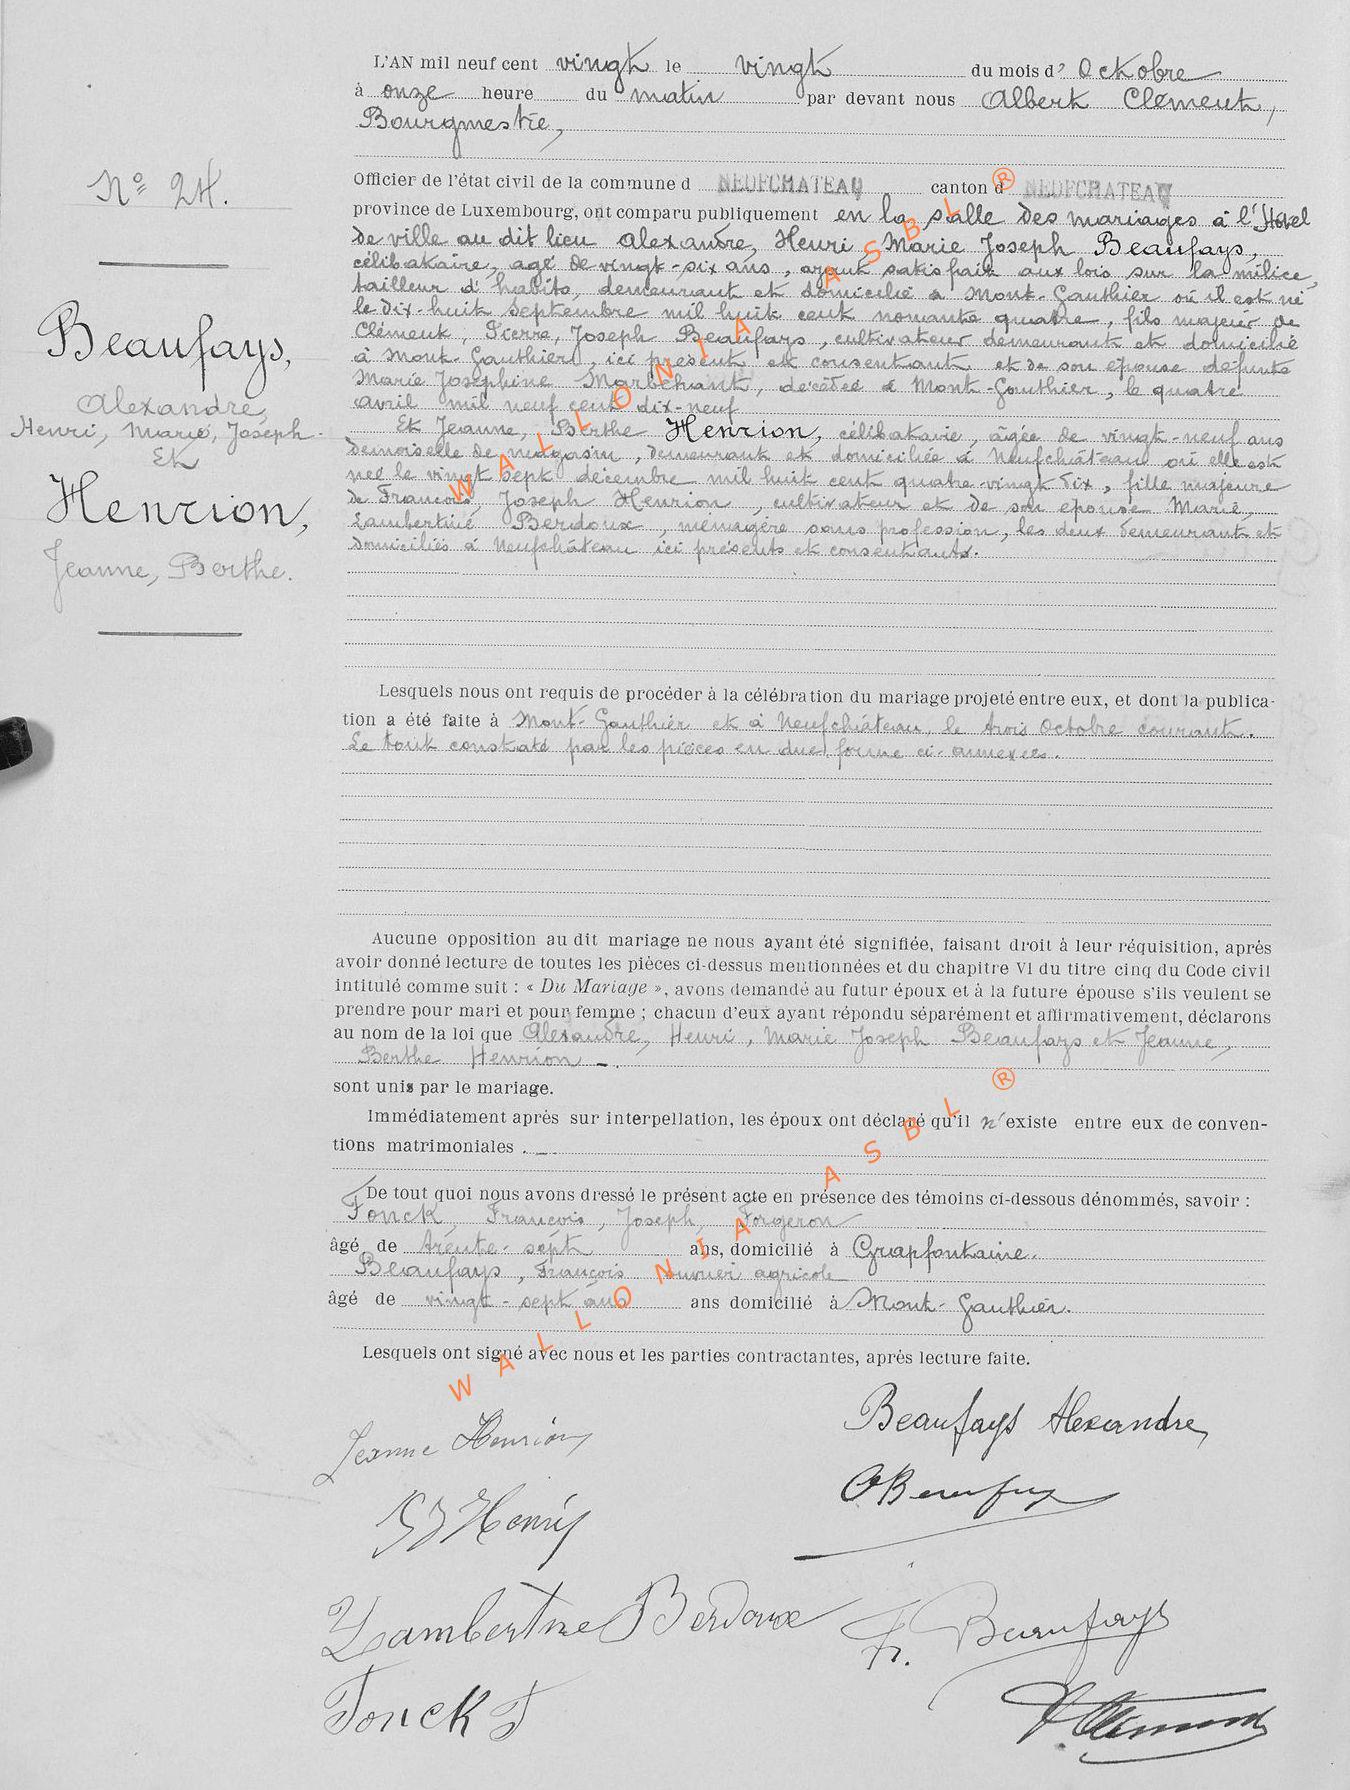 L'AN mil neuf cent vingt le vingt du mois d' Octobre
à onze heure du matin par devant nous Albert Clément,
Bourgmestre,
Nº 24.
Officier de l'état civil de la commune d NEUFCHATEAU canton d NEUFCHATEAU
province de Luxembourg, ont comparu publiquement en la salle des mariages à l'Hôtel
de ville au dit lieu Alexandre, Henri, Marie Joseph Beaufays,
célibataire, agé de vingt-six ans, ayant satisfait aux lois sur la milice,
tailleur d'habits, demeurant et domicilié à Mont-Gauthier où il est né
le dix-huit Septembre mil huit cent nonante quatre, fils majeur de
Clément, Pierre, Joseph Beaufays, cultivateur demeurant et domicilié
à Mont-Gauthier, ici présent et consentant et de son épouse défunte
Marie Joséphine Marbehant, décédée à Mont-Gauthier, le quatre
avril mil neuf cent dix-neuf
Et Jeanne, Berthe Henrion, célibataire, âgée de vingt-neuf ans
demoiselle de magasin, demeurant et domiciliée à Neufchâteau où elle est
née le vingt sept décembre mil huit cent quatre-vingt dix, fille majeure
de François, Joseph Henrion, cultivateur et de son épouse Marie,
Lambertine Berdoux, ménagère sans profession, les deux demeurant et
domiciliés à Neufchâteau ici présents et consentants.
Beaufays,
Alexandre,
Henri, Marie, Joseph
Et
Henrion,
Jeanne, Berthe.
Lesquels nous ont requis de procéder à la célébration du mariage projeté entre eux, et dont la publica-
tion a été faite à Mont-Gauthier et à Neufchâteau, le trois Octobre courant.
Le tout constaté par les pièces en due forme ci-annexées.
Aucune opposition au dit mariage ne nous ayant été signifiée, faisant droit à leur réquisition, après
avoir donné lecture de toutes les pièces ci-dessus mentionnées et du chapitre VI du titre cinq du Code civil
intitulé comme suit : « Du Mariage », avons demandé au futur époux et à la future épouse s'ils veulent se
prendre pour mari et pour femme ; chacun d'eux ayant répondu séparément et affirmativement, déclarons
au nom de la loi que Alexandre, Henri, Marie Joseph Beaufays et Jeanne,
Berthe Henrion
sont unis par le mariage.
Immédiatement après sur interpellation, les époux ont déclaré qu'il n'existe entre eux de conven-
tions matrimoniales.
De tout quoi nous avons dressé le présent acte en présence des témoins ci-dessous dénommés, savoir :
Fonck, François, Joseph, Forgeron
âgé de trente-sept ans, domicilié à Grapfontaine.
Beaufays, François ouvrier agricole
âgé de vingt-sept ans ans domicilié à Mont-Gauthier.
Lesquels ont signé avec nous et les parties contractantes, après lecture faite.
Jeanne Henrion
Beaufays Alexandre
Lambertine Berdoux
Fr. Beaufays
Fonck F
WALLONIA ASBL ®
WALLONIA ASBL ®